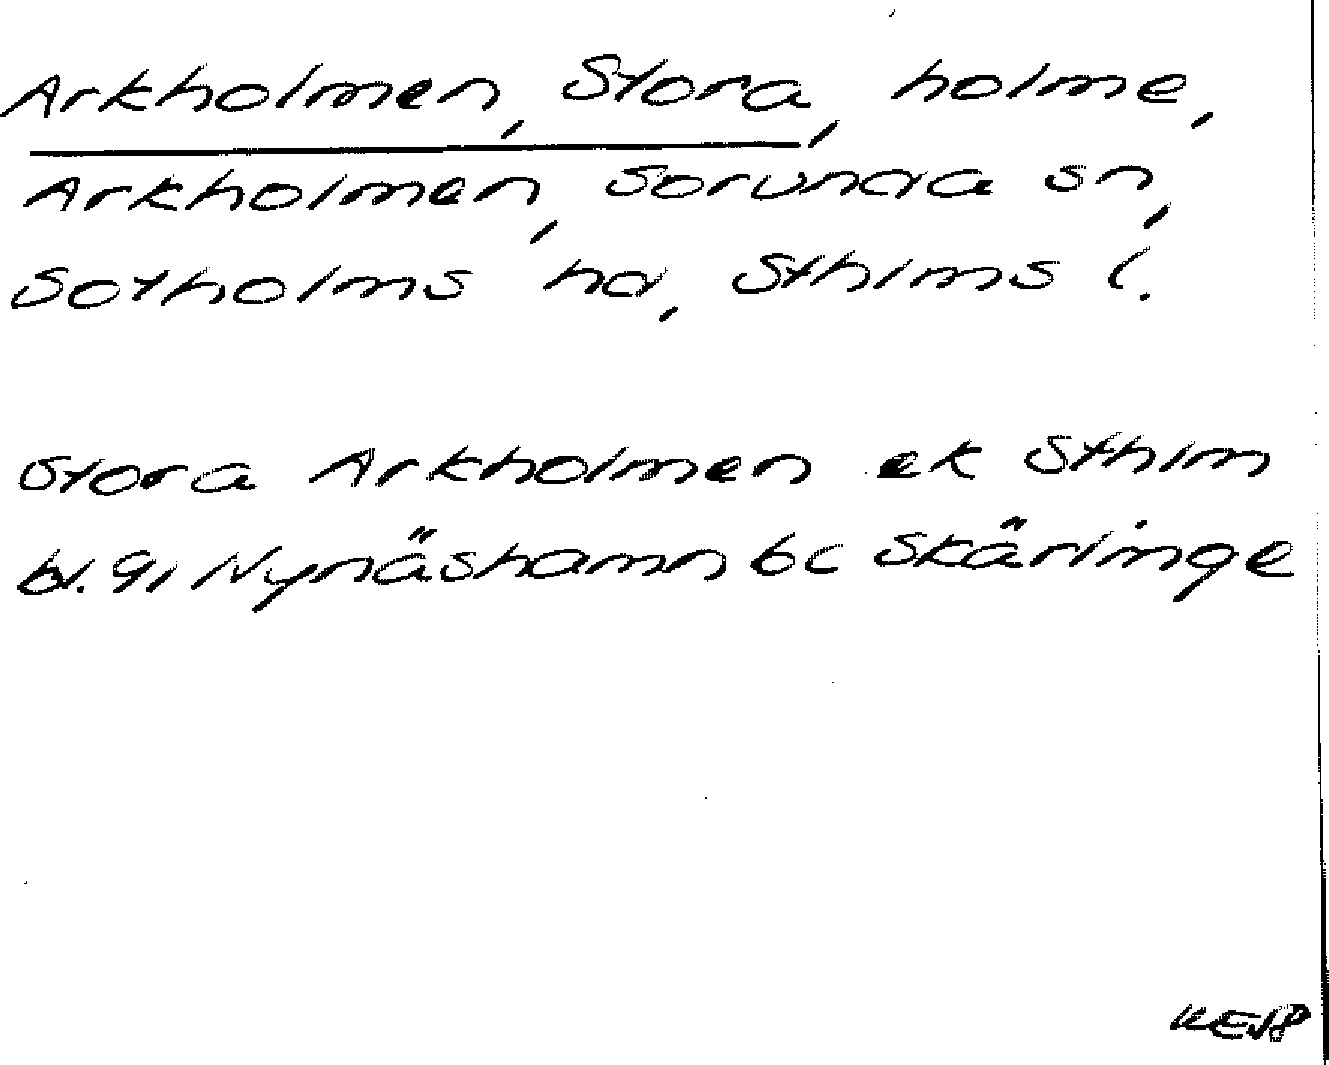 Arkholmen, Stora, holme,
Arkholmen, Sorunda sn,
Sotholms hd, Sthlms l.
Stora Arkholmen ek Sthlm
bl. 91 Nynäshamn bc Skärlinge